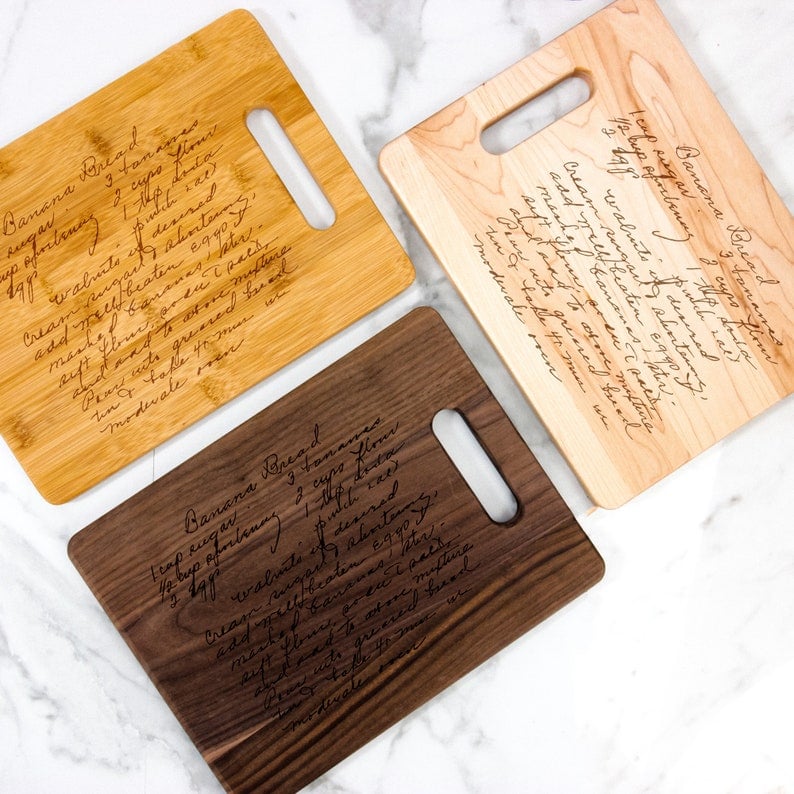 Banana Bread
sugar 3 bananas
cup shortening 2 cups flour
eggs 1 tsp soda
pinch salt
walnuts if desired
Cream sugar & shortening,
add well beaten eggs &
mashed bananas, stir.
sift flour, soda & salt,
and add to above mixture
Pour into greased bread
tin & bake min in
moderate oven
Banana Bread
1 cup sugar 3 bananas
1/2 cup shortening 2 cups flour
2 eggs 1 tsp soda
pinch salt
walnuts if desired
Cream sugar & shortening,
add well beaten eggs &
mashed bananas, stir.
sift flour, soda & salt,
and add to above mixture
Pour into greased bread
tin & bake min in
moderate oven
Banana Bread
1 cup sugar 3 bananas
1/2 cup shortening 2 cups flour
2 eggs 1 tsp soda
pinch salt
walnuts if desired
Cream sugar & shortening,
add well beaten eggs &
mashed bananas, stir.
sift flour, soda & salt,
and add to above mixture
Pour into greased bread
tin & bake min in
moderate oven